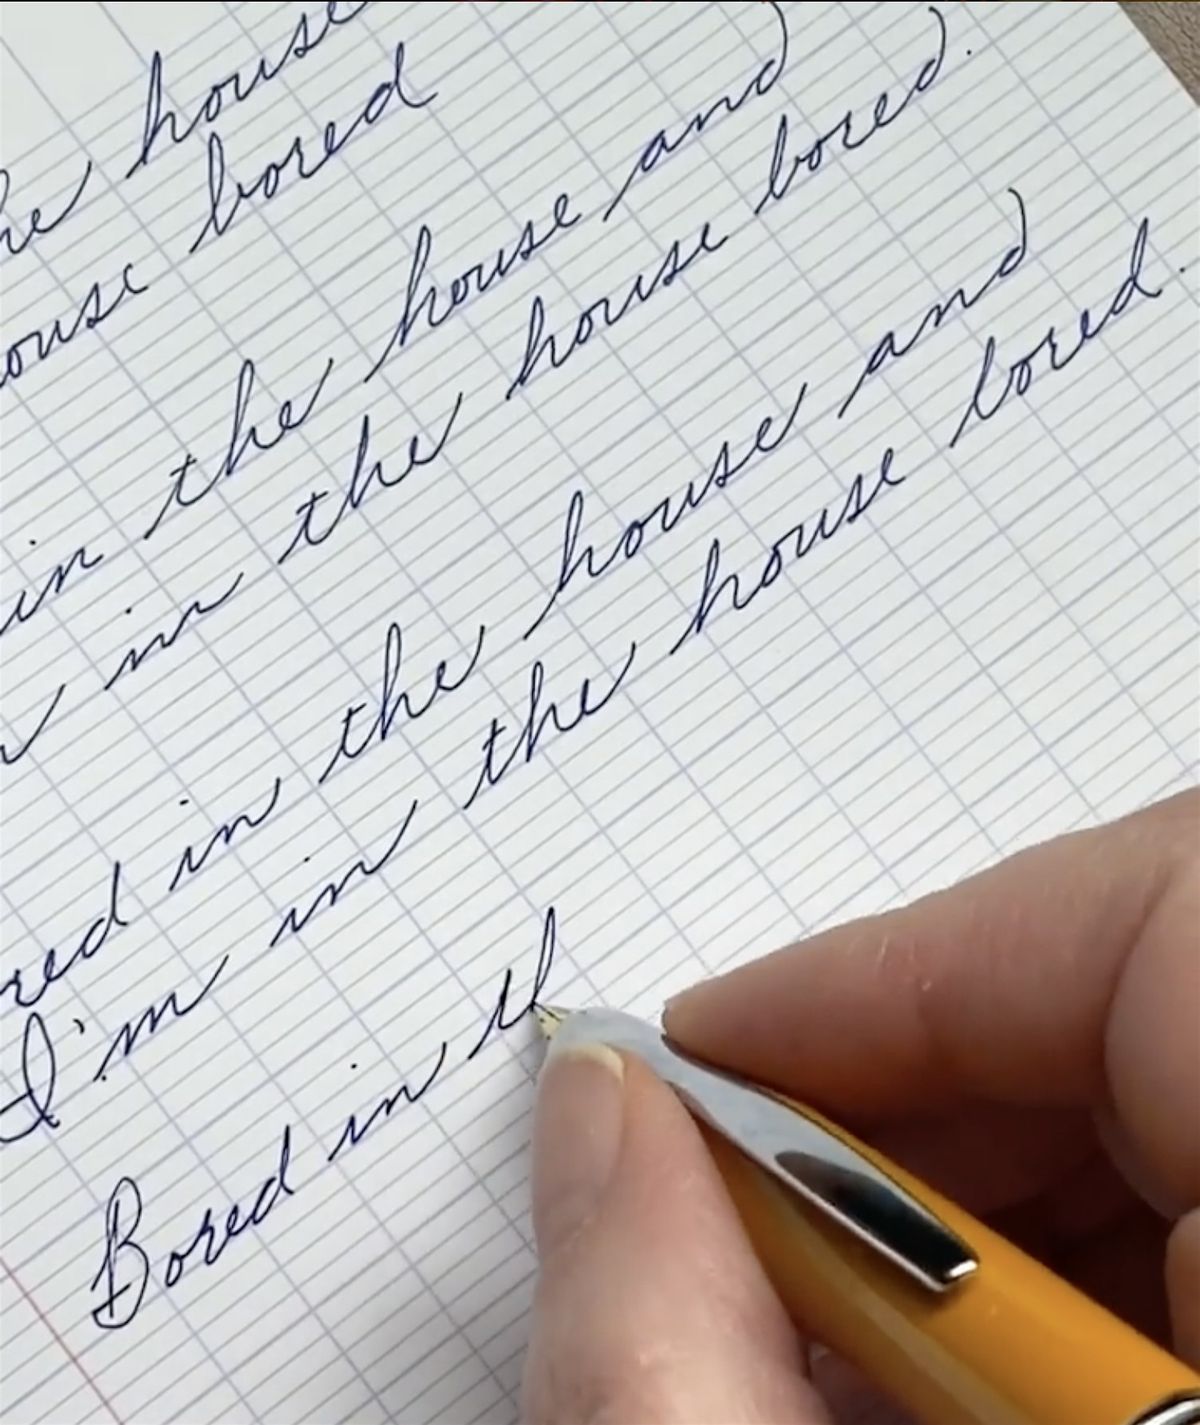 he house
ouse bored
in the house and
in the house bored.
red in the house and
I'm in the house bored.
Bored in th